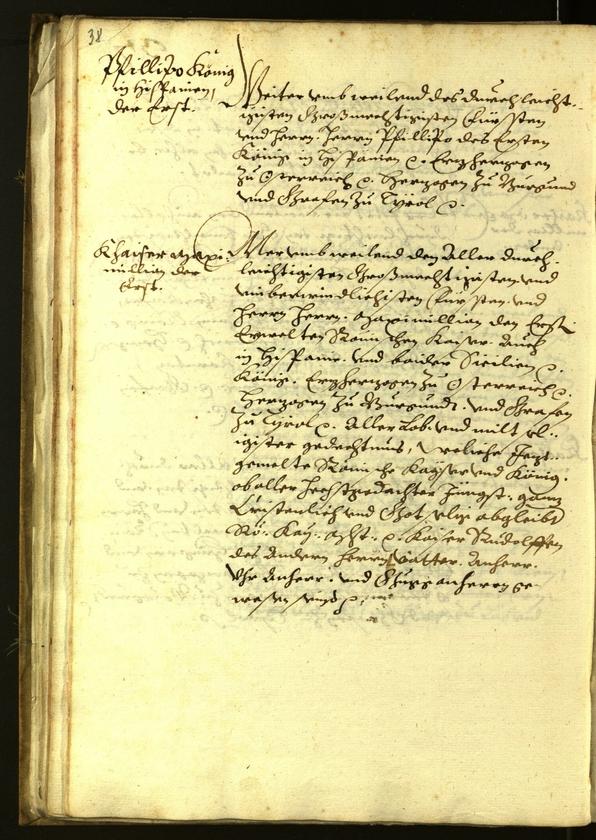 38
Pfillipo König
in Hispanien,
der Erst.
Weiter umb weilend des durchleicht-
igisten Großmechtigisten Fürsten
und Herrn. Herrn Pfillipo des Ersten
König in Hispanien ꝛc. Erzherzogen
zu Österreich ꝛc. Herzogen zu Burgund
und Grafen zu Tyrol ꝛc.
Khaiser Maxi-
million der
Erst.
Mer umb weilend den Aller durch-
leichtigisten Großmechtigisten und
uniberwindlichisten Fürsten und
Herrn Herrn. Maximillian den Erst
Erwelten Römischen Kayser. auch
in Hispanie. und baider Sicilien ꝛc.
König. Erzherzogen zu Österreich ꝛc.
Herzogen zu Burgundt. und Grafen
zu Tyrol ꝛc. Aller Lob und milt sel-
igister gedechtnus, welche Jezt-
gemelte Römische Kayser und König.
ob aller hechstgedachter Jüngst: ganz
Cristenlich und Gotselige abgleibt
Rö: Kay: Mht: ꝛc. Kaiser Rudolffen
des Andern Herrn Vatter. Anherr.
Uhr Anherr. und Gugganherrn ge-
wesen seind ꝛc.